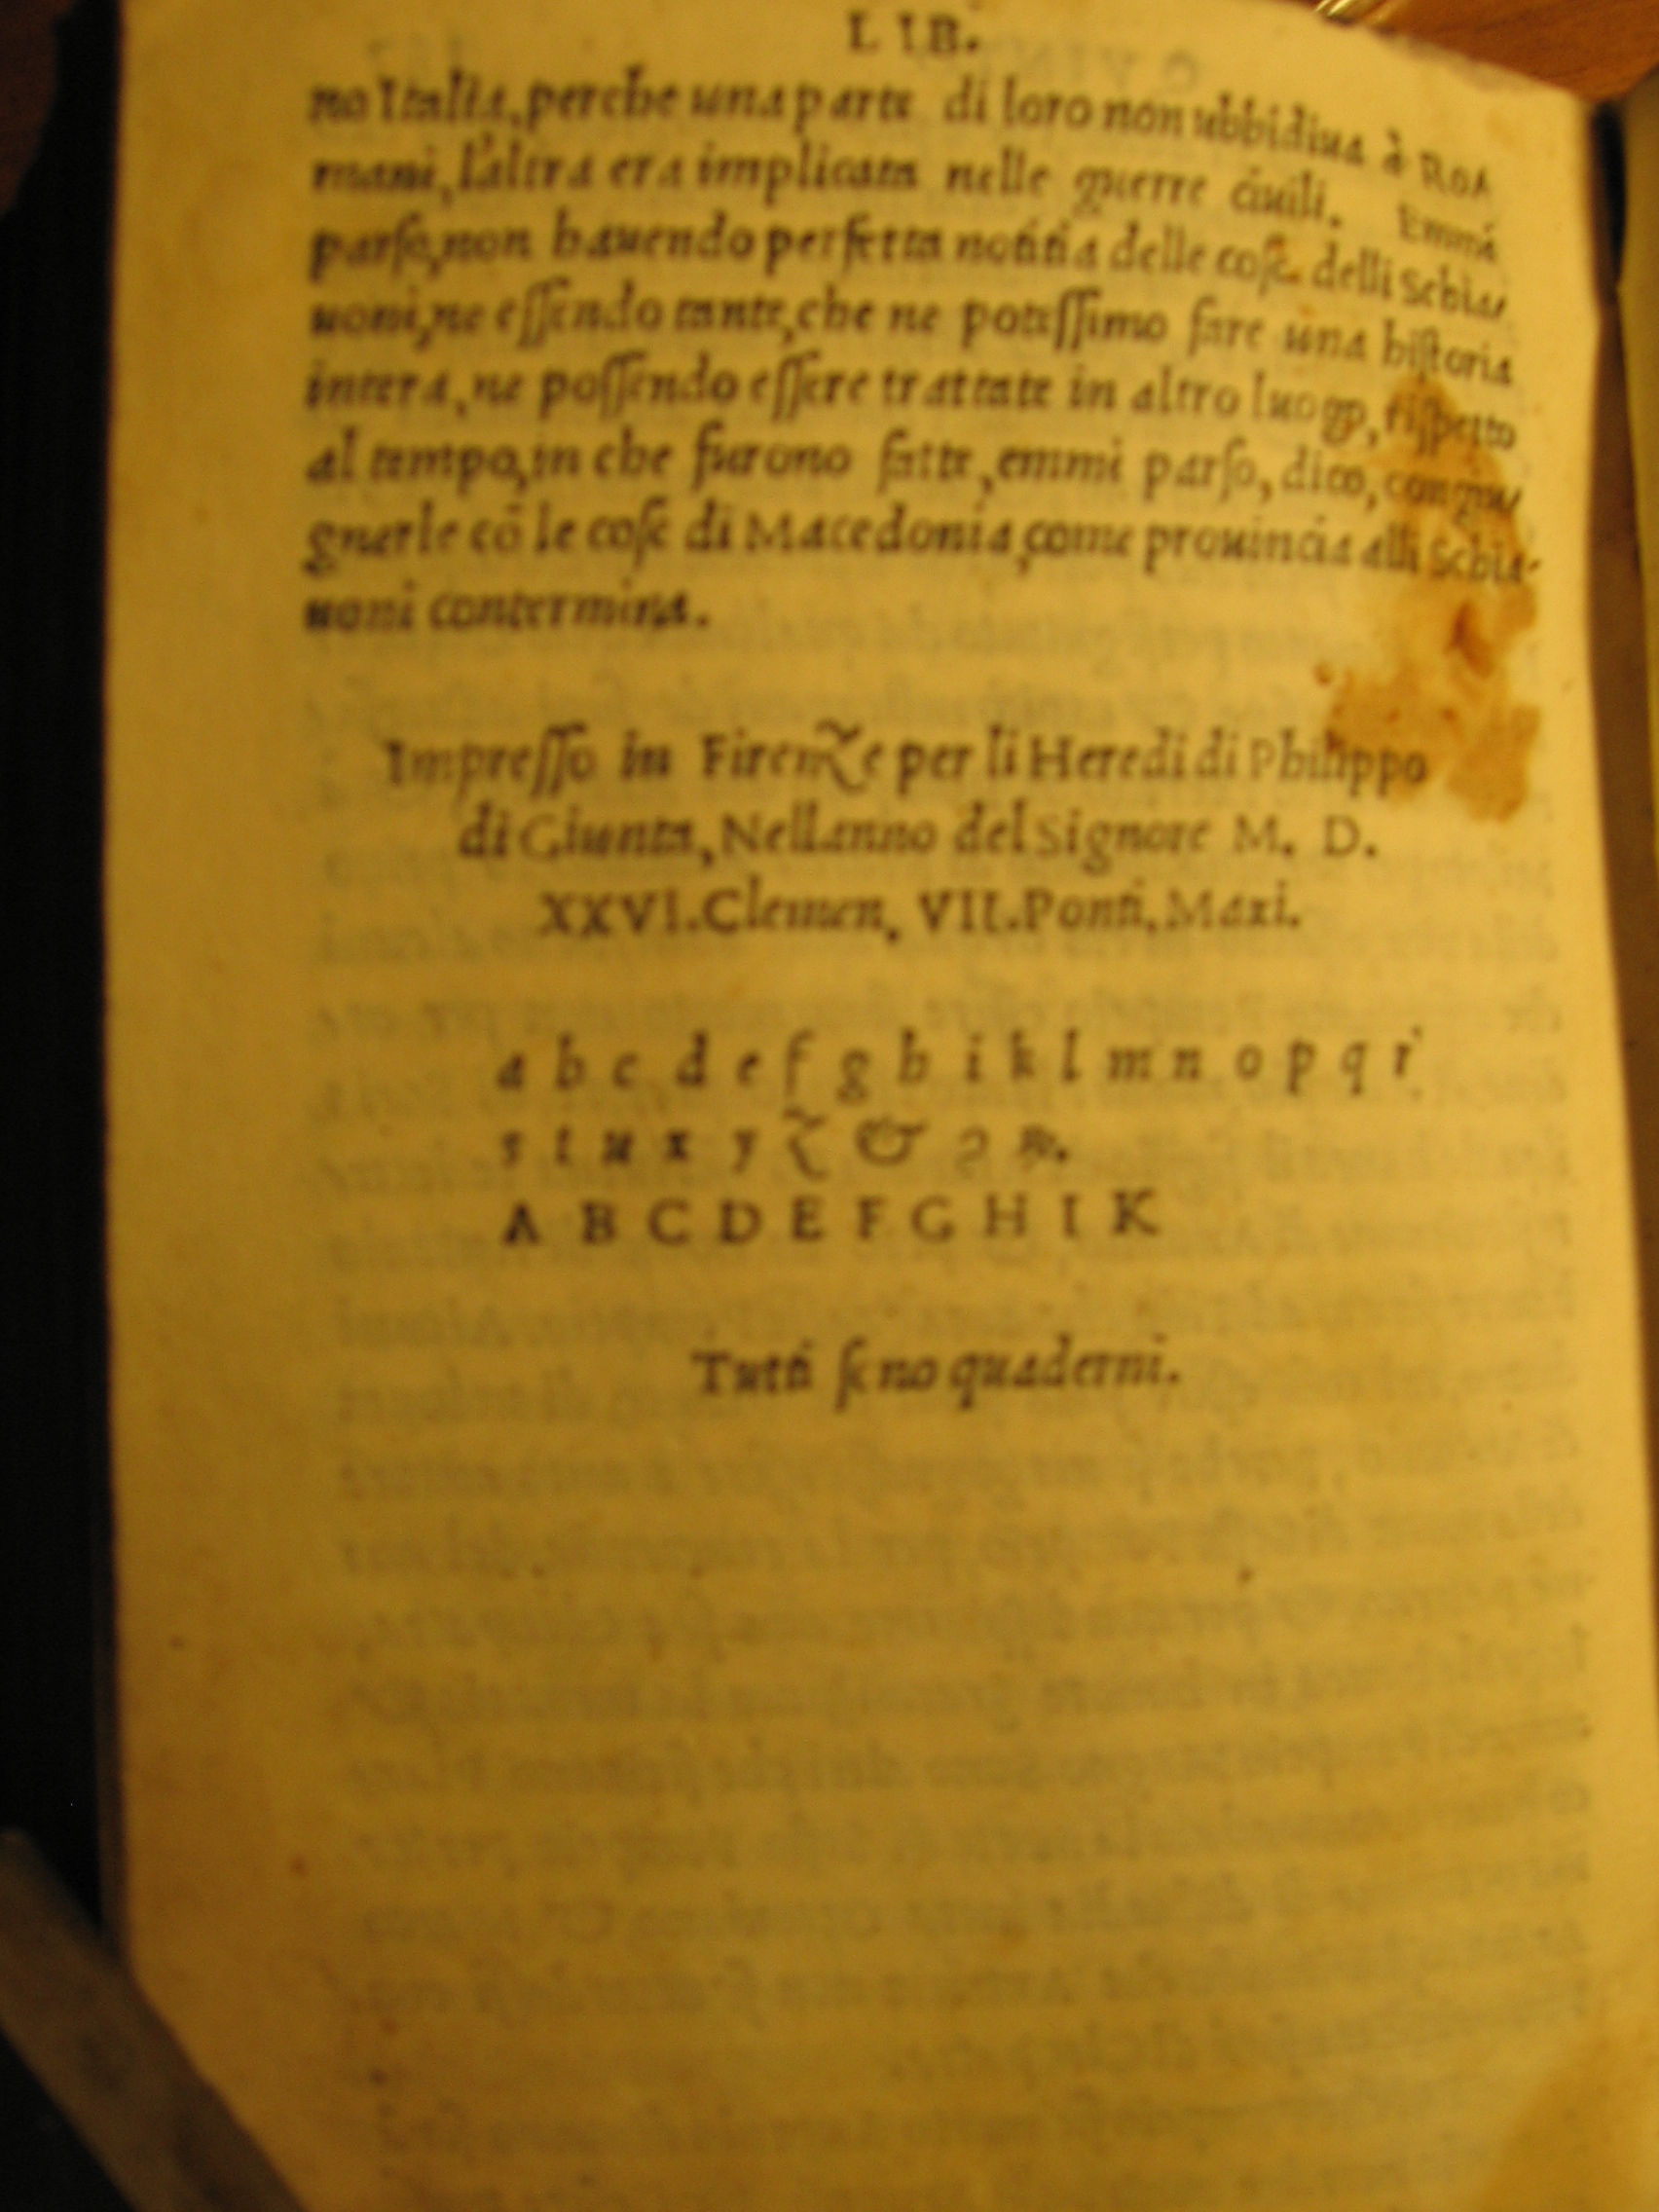 LIB.
no Italia, perche una parte di loro non ubbidiua à Ro/
mani, l'altra era implicata nelle guerre ciuili. Emmi
parso, non hauendo perfetta notitia delle cose delli Schia/
uoni, ne essendo tante, che ne potessimo fare una historia
intera, ne possendo essere trattate in altro luogo, rispetto
al tempo, in che furono fatte, emmi parso, dico, congiu/
gnerle cõ le cose di Macedonia, come prouincia alli Schia-
uoni contermina.
Impresso in Firenze per li Heredi di Philippo
di Giunta, Nellanno del Signore M. D.
XXVI. Clemen. VII. Ponti. Maxi.
a b c d e f g h i k l m n o p q r
s t u x y z & ꝯ ꝶ.
A B C D E F G H I K
Tutti seno quaderni.